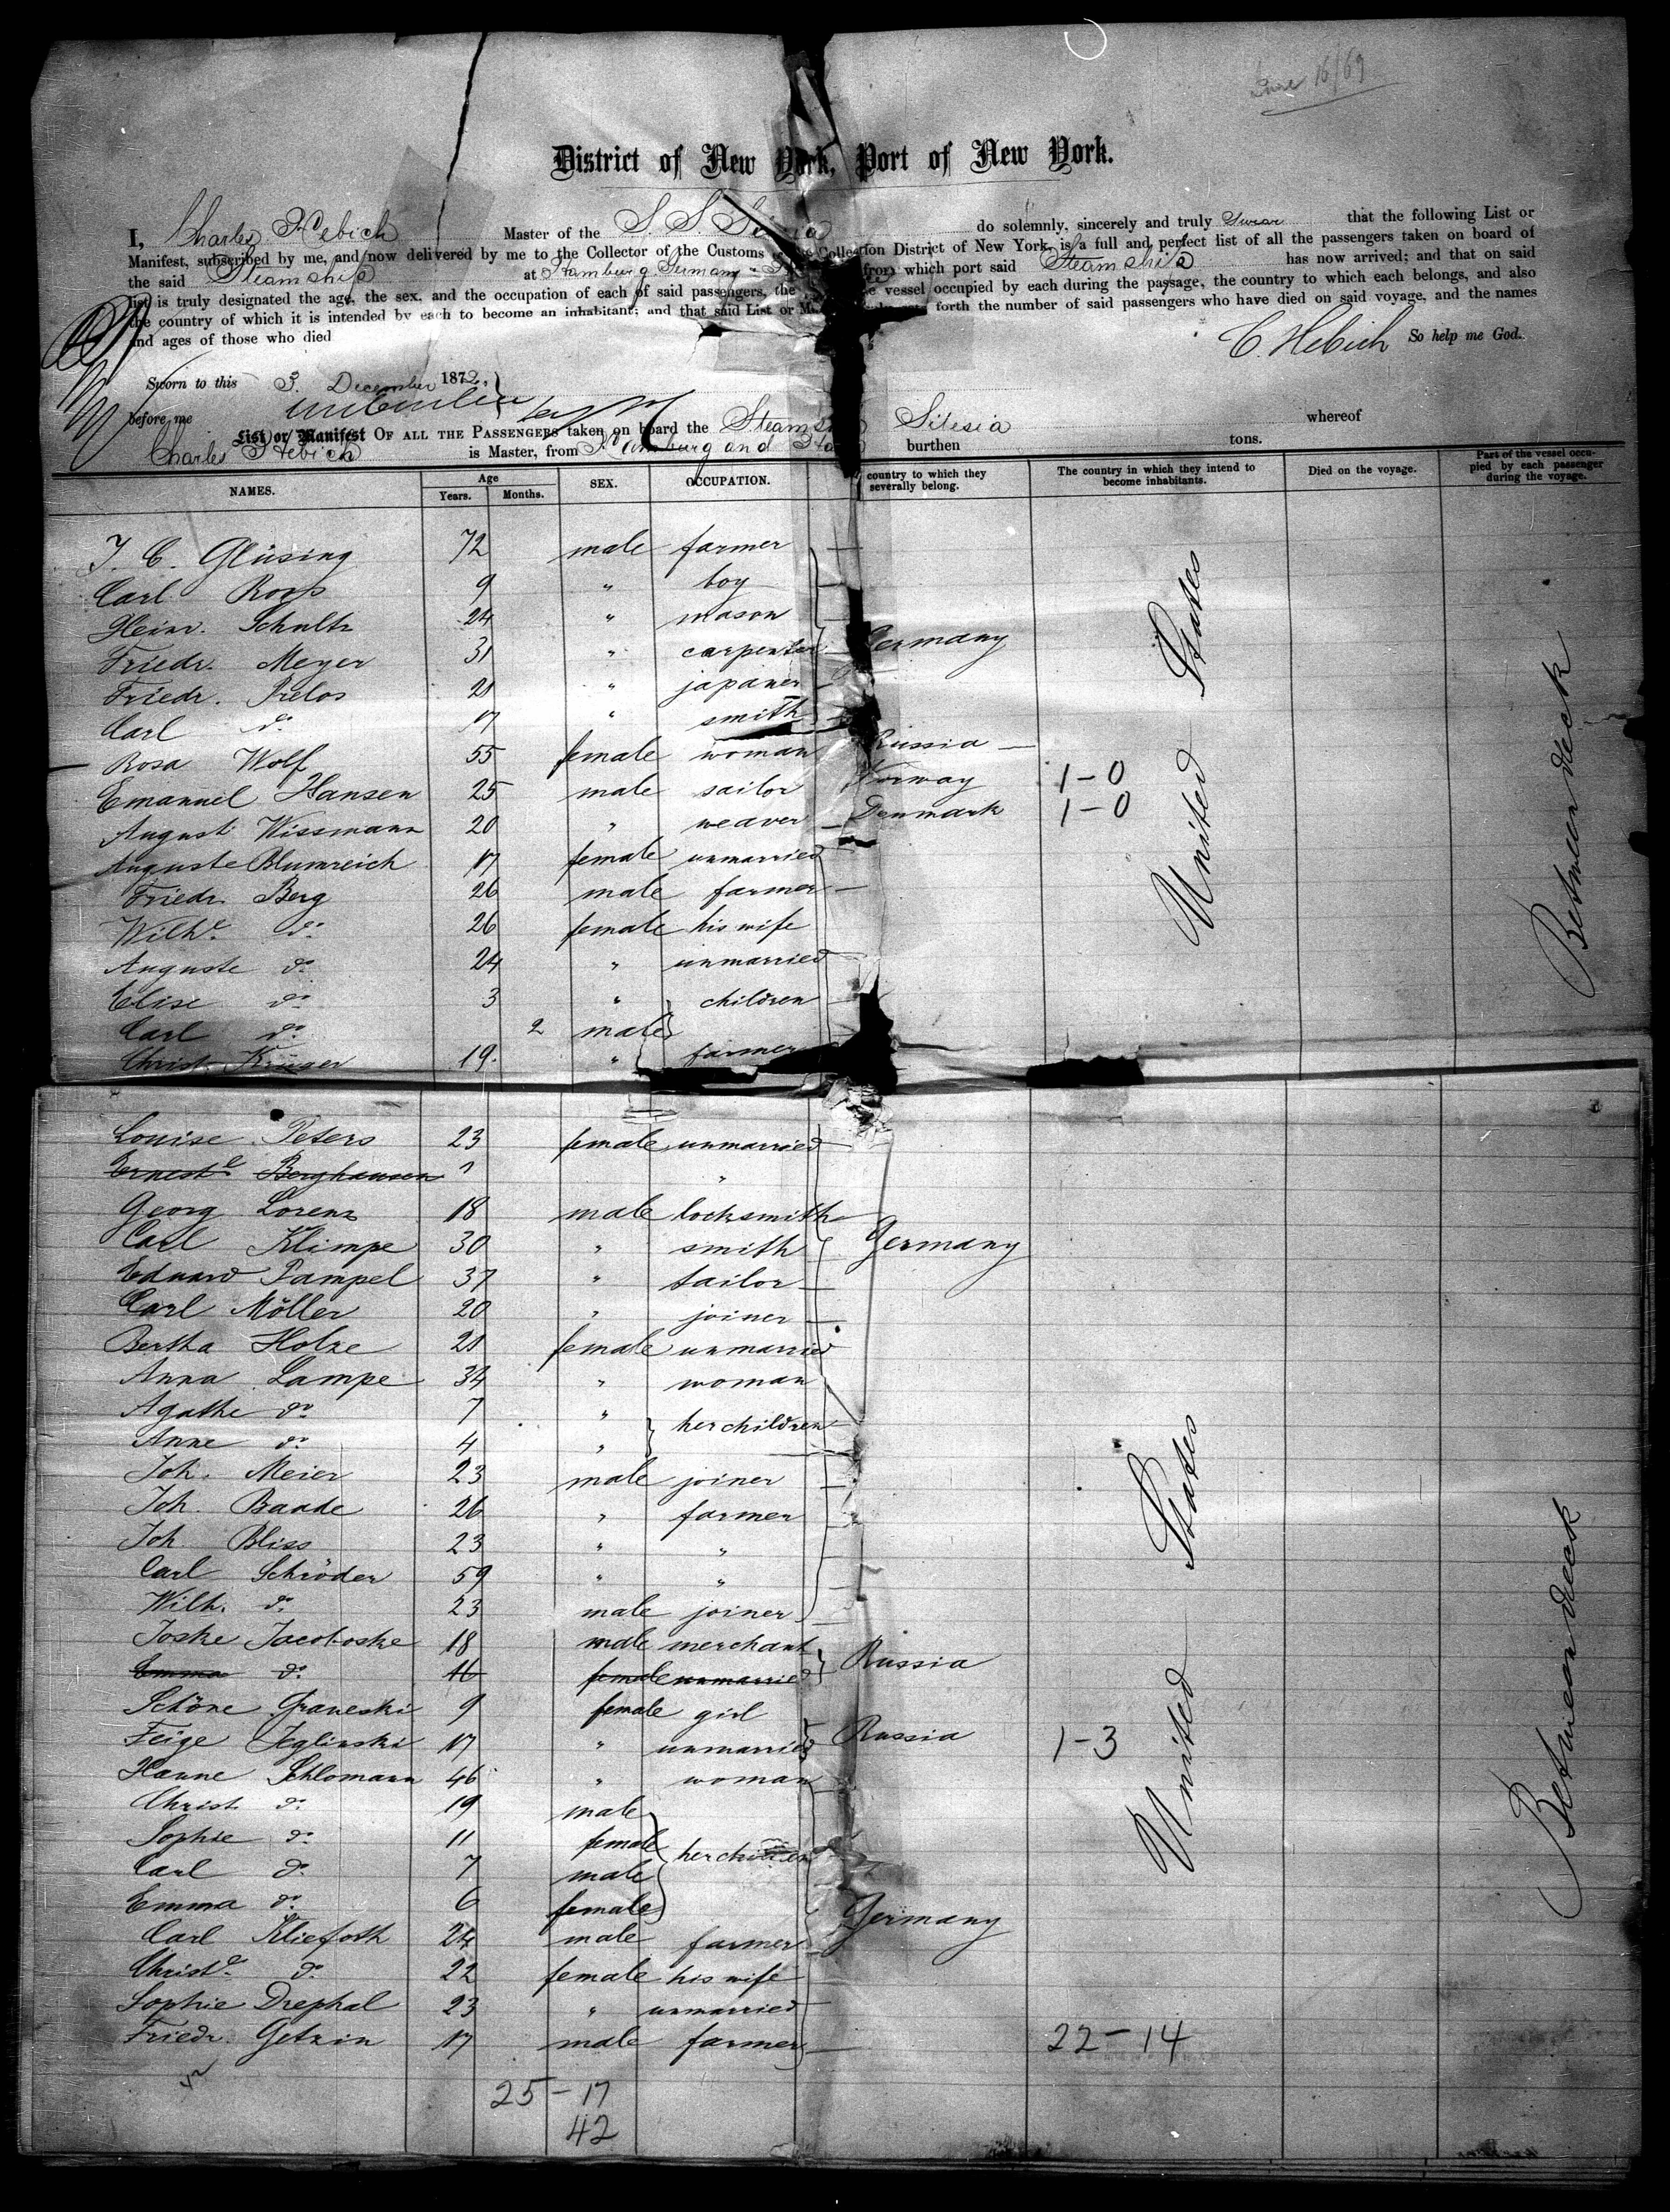 June 16/69
District of New York, Port of New York.
I, Charles Hebich Master of the S. S. Silesia do solemnly, sincerely and truly swear that the following List or
Manifest, subscribed by me, and now delivered by me to the Collector of the Customs Collection District of New York, is a full and perfect list of all the passengers taken on board of
the said Steamship at Hamburg Germany from which port said Steamship has now arrived; and that on said
list is truly designated the age, the sex, and the occupation of each of said passengers, the vessel occupied by each during the passage, the country to which each belongs, and also
the country of which it is intended by each to become an inhabitant; and that said List or forth the number of said passengers who have died on said voyage, and the names
and ages of those who died
C. Hebich So help me God.
Sworn to this 3. December 1872.
before me
List or Manifest OF ALL THE PASSENGERS taken on board the Steamship Silesia whereof
Charles Hebich is Master, from Hamburg and burthen tons.
NAMES. Age Years. Months. SEX. OCCUPATION. country to which they severally belong. The country in which they intend to become inhabitants. Died on the voyage. Part of the vessel occupied by each passenger during the voyage.
J. C. Glüsing 72 male farmer
Carl Roops 9 " boy
Heinr. Schultz 24 " mason
Friedr. Meyer 31 " carpenter Germany
Friedr. Prelos 21 " japaner
Carl do. 17 " smith
Rosa Wolf 55 female woman Russia
Emanuel Hansen 25 male sailor Norway 1-0
August Wissmann 20 " weaver Denmark 1-0
Auguste Blumreich 17 female unmarried
Friedr. Berg 26 male farmer
Wilhe. do. 26 female his wife
Auguste do. 24 " unmarried
Elise do. 3 " children
Carl do. 2 male
Christ. Krüger 19. " farmer
United States
Between deck
Louise Peters 23 female unmarried
Erneste Berghausen "
Georg Lorenz 18 male locksmith
Carl Klimpe 30 " smith Germany
Eduard Pampel 37 " tailor
Carl Möller 20 " joiner
Bertha Holze 21 female unmarried
Anna Lampe 34 " woman
Agathe do. 7 " her children
Anne do. 4 "
Joh. Meier 23 male joiner
Joh. Baade 26 " farmer
Joh. Bliss 23 " "
Carl Schröder 59 " "
Wilh. do. 23 male joiner
Joske Jacoboske 18 male merchant Russia
Emma do. 16 female unmarried
Schöne Graneski 9 female girl
Feige Jeglinski 17 " unmarried Russia 1-3
Hanne Schlomann 46 " woman
Christ. do. 19 male
Sophie do. 11 female her children
Carl do. 7 male
Emma do. 6 female
Carl Kliefoth 24 male farmer Germany
Christe. do. 22 female his wife
Sophie Drephal 23 " unmarried
Friedr. Getzin 17 male farmer 22-14
United States
Between deck
25-17
42